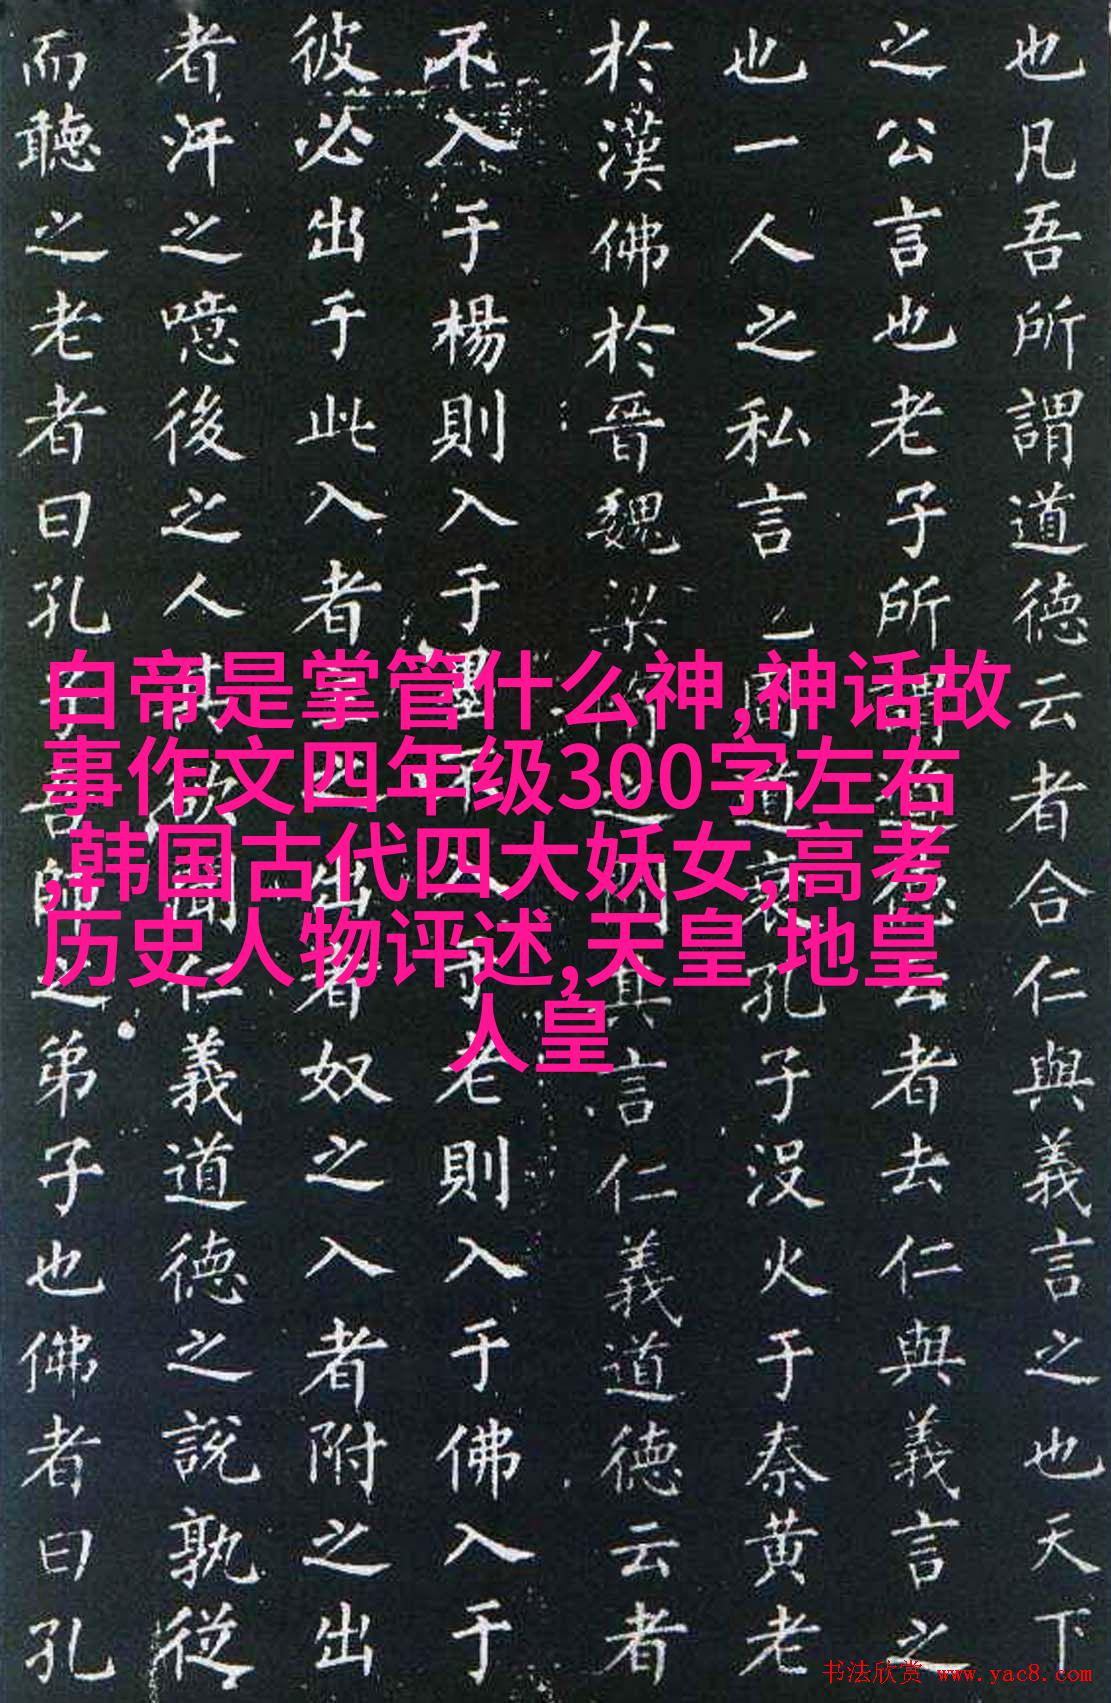 也凡吾所謂道德云者合仁與義言之也天下
之公言也老子所謂道德云者去仁與義言之
也一人之私言也周道衰孔子没火于秦黄老
於漢佛於晉魏梁隋之間其言仁義道德云者
不入于楊則入于墨不入于老則入于佛入于
彼必出于此入者主之出者奴之入者附之出
者汙之噫後之人其欲聞仁義道德之説孰從
而聽之老者曰孔子吾師之弟子也佛者曰孔
白帝是掌管什么神,神话故
事作文四年级300字左右
,韩国古代四大妖女,高考
历史人物评述,天皇 地皇
人皇
书法欣赏 www.yac8.com